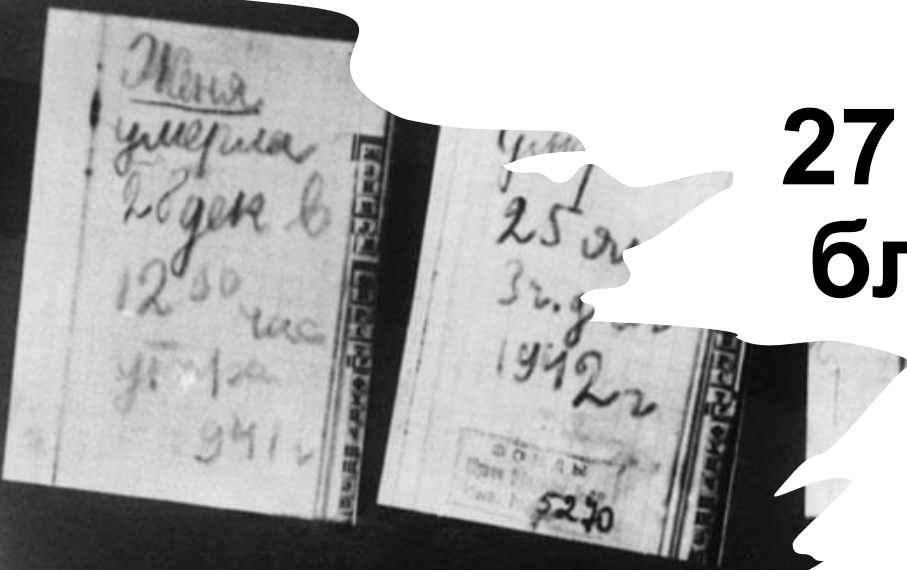 Женя
умерла
28 дек в
12 30 час
утра
1941 г
25 ян
3ч. дня
1942 г
ФОНДЫ
5270
27
бл